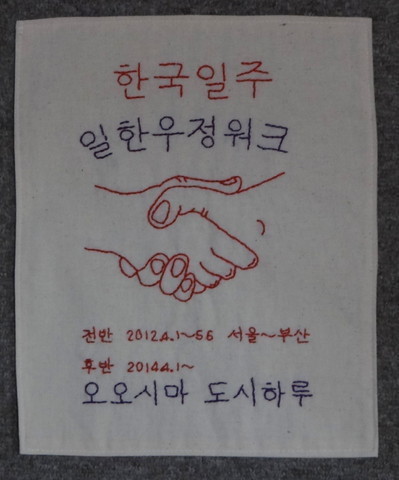 한국일주
일한우정워크
전반 2012.4.1~5.6 서울~부산
후반 2014.4.1~
오오시마 도시하루